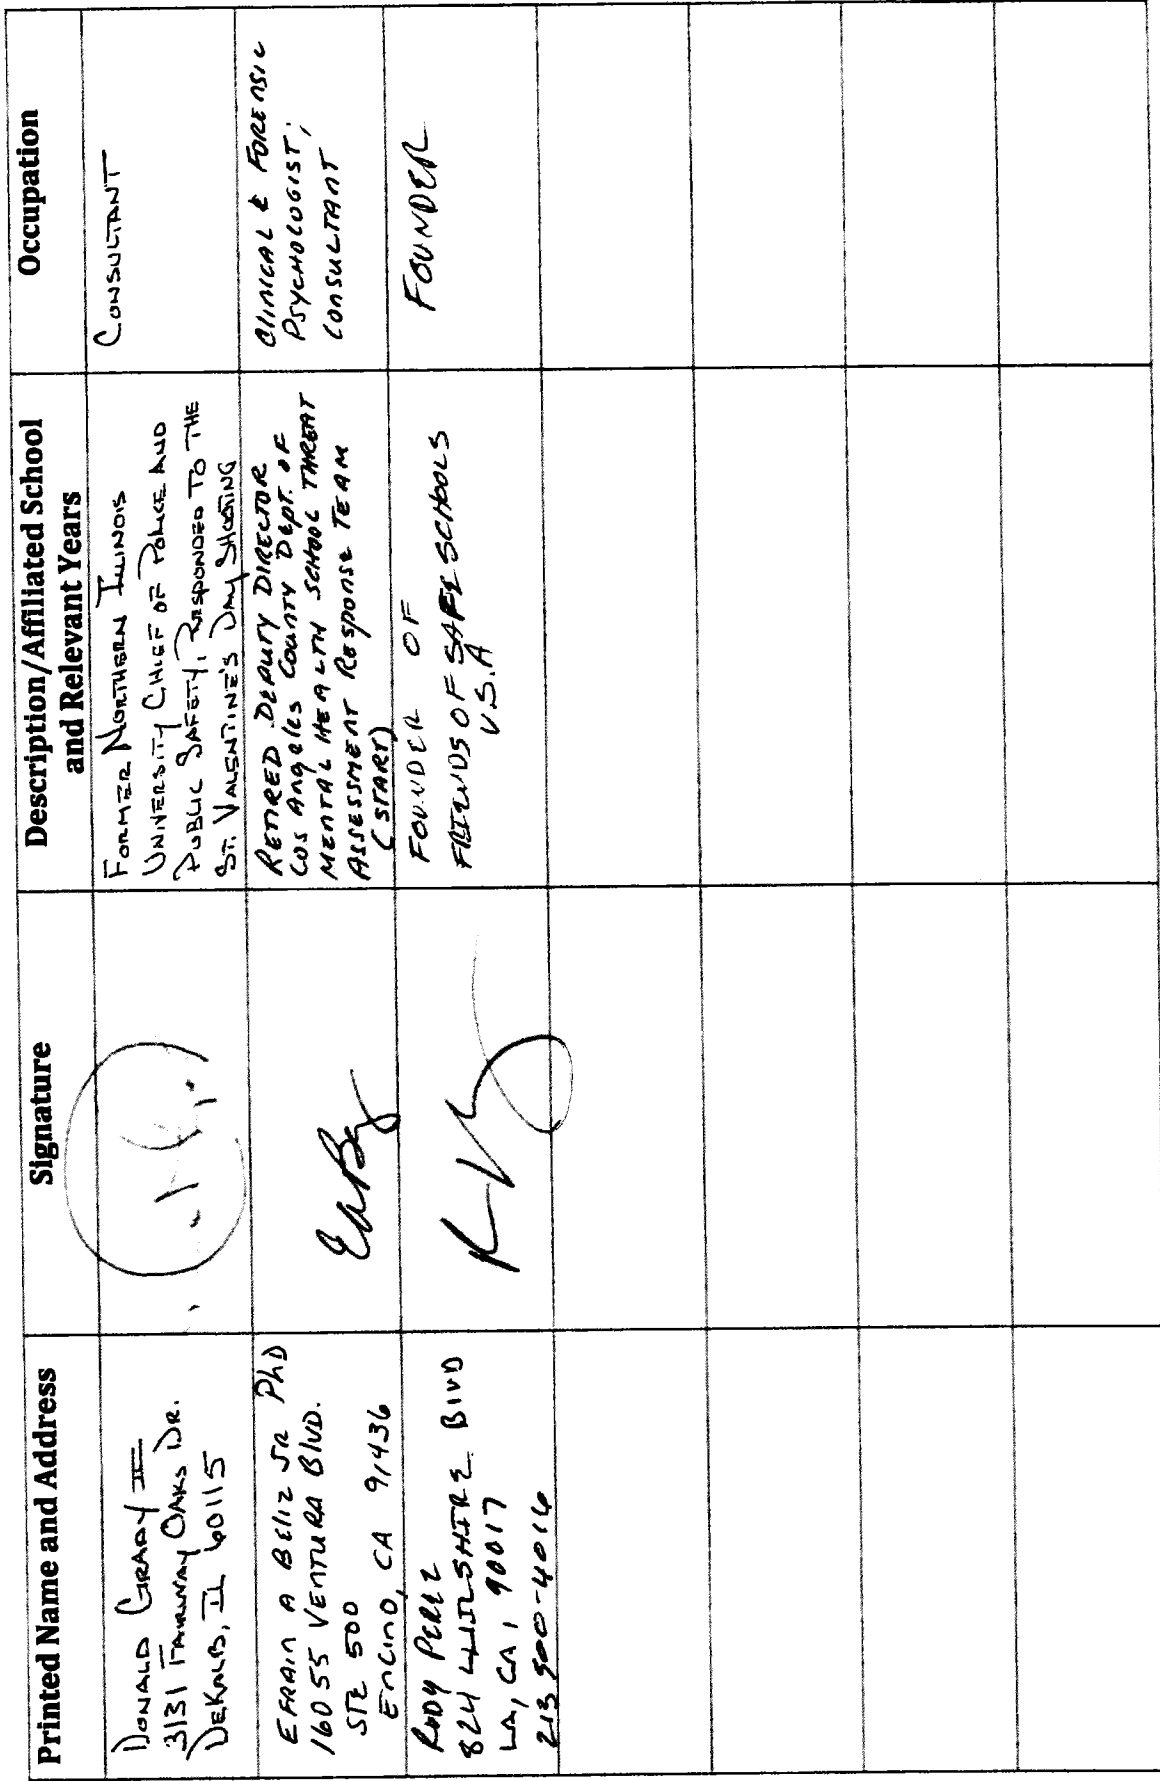 Printed Name and Address
Signature
Description/Affiliated School
and Relevant Years
Occupation
DONALD GRADY II
3131 FAIRWAY OAKS DR.
DEKALB, IL 60115
FORMER NORTHERN ILLINOIS
UNIVERSITY CHIEF OF POLICE AND
PUBLIC SAFETY, RESPONDED TO THE
ST. VALENTINE'S DAY SHOOTING
CONSULTANT
EFRAIN A BELIZ JR PhD
16055 VENTURA BLVD.
STE 500
ENCINO, CA 91436
RETIRED DEPUTY DIRECTOR
LOS ANGELES COUNTY DEPT. OF
MENTAL HEALTH SCHOOL THREAT
ASSESSMENT RESPONSE TEAM
(START)
CLINICAL & FORENSIC
PSYCHOLOGIST;
CONSULTANT
RUDY PEREZ
824 WILSHIRE BLVD
LA, CA, 90017
213 500-4016
FOUNDER OF
FRIENDS OF SAFE SCHOOLS
U.S.A
FOUNDER